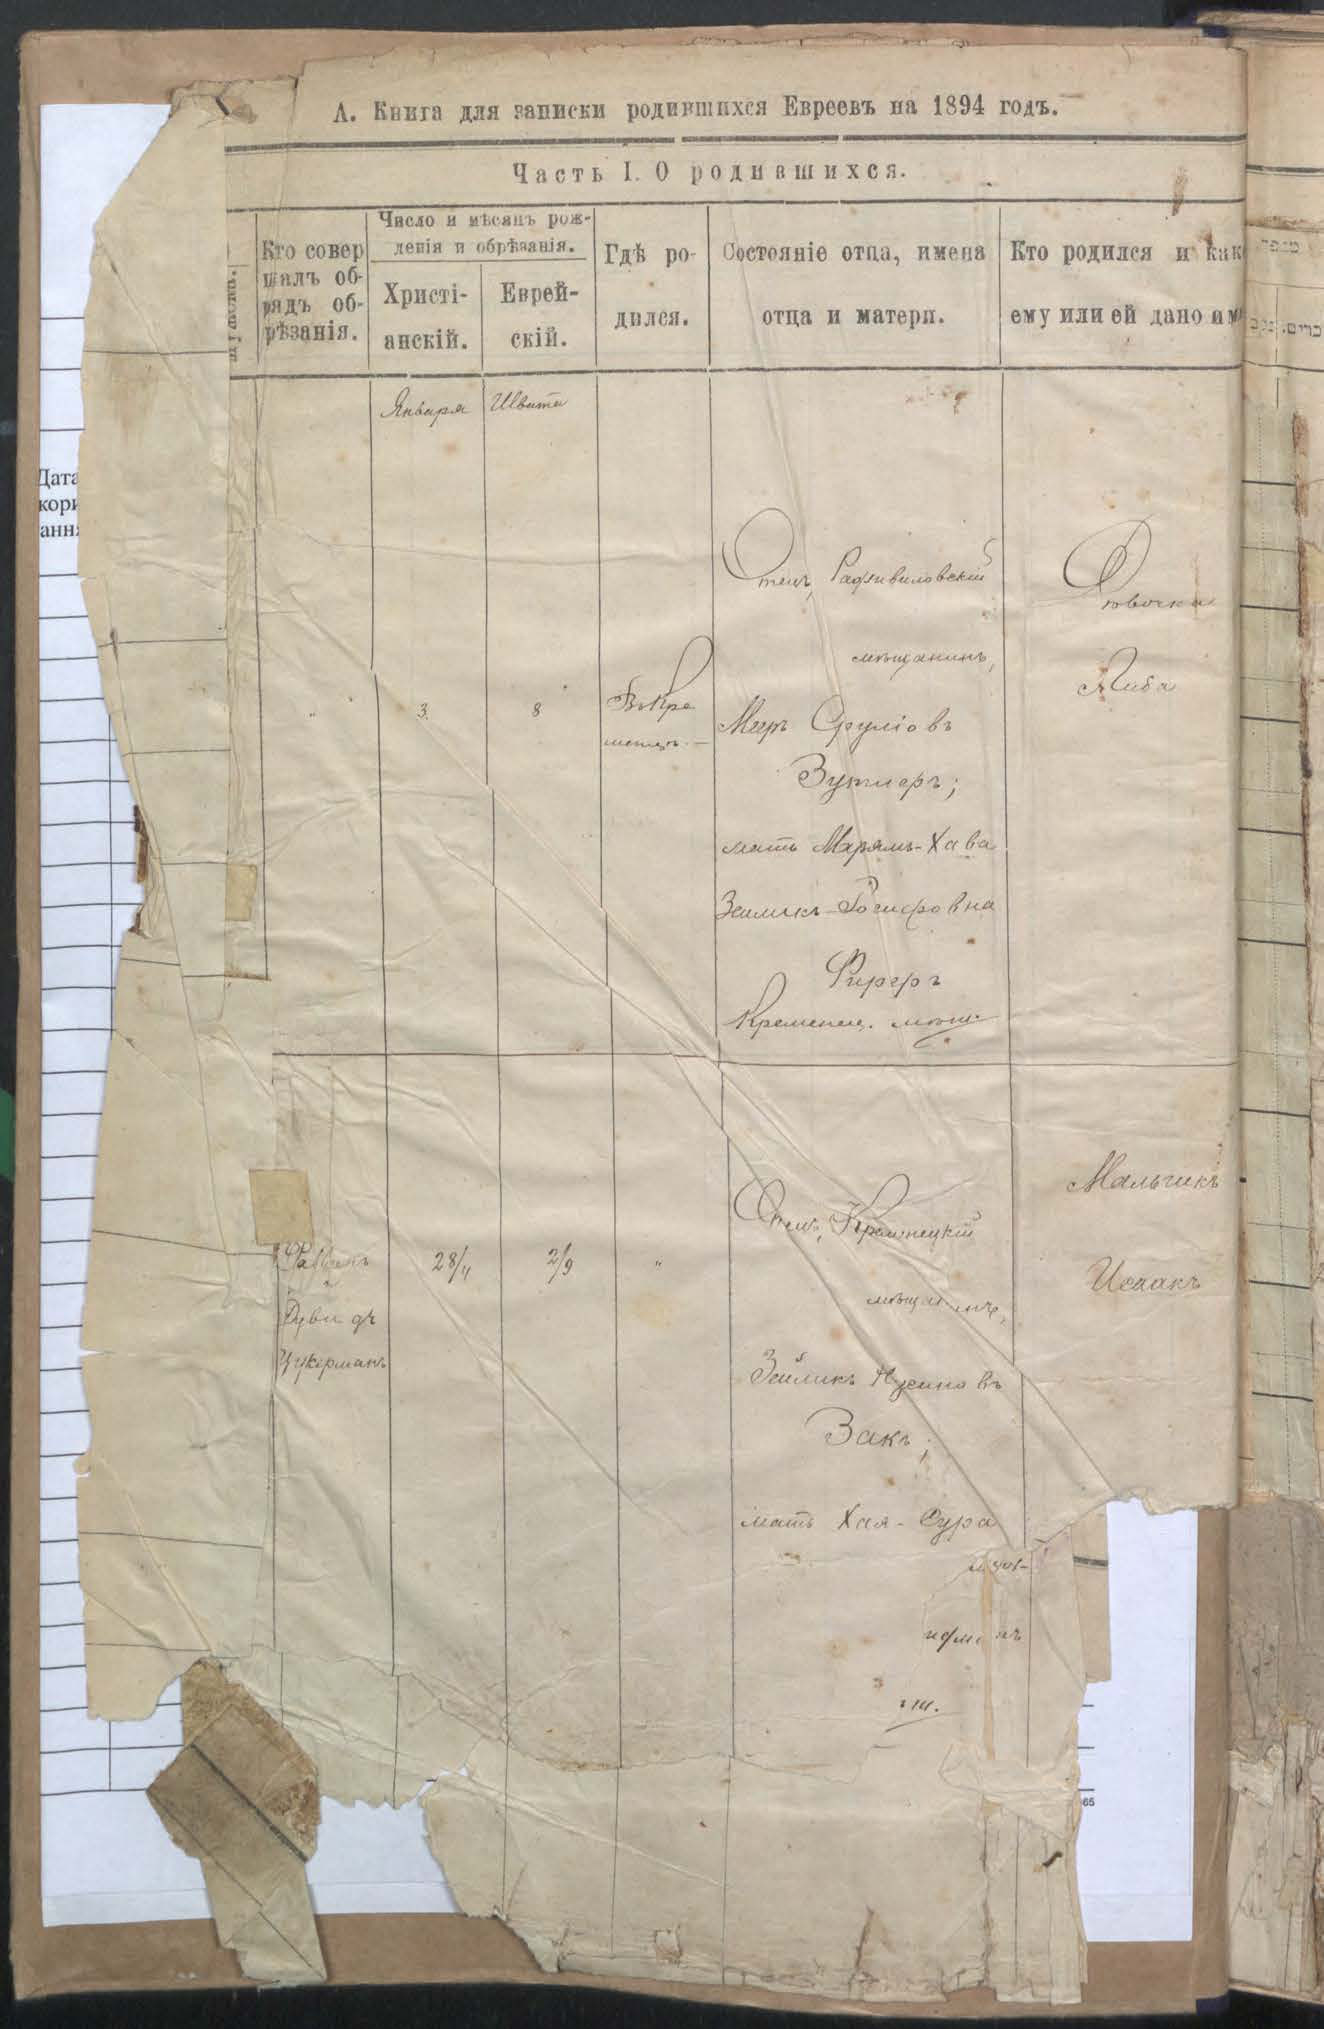 А. Книга для записки родившихся Евреевъ на 1894 годъ.
Часть I. О родившихся.
Кто совер
шалъ об-
рядъ об-
рѣзанія.
Число и мѣсяцъ рож-
денія и обрѣзанія.
Христі-
анскій.
Еврей-
скій.
Гдѣ ро-
дился.
Состояніе отца, имена
отца и матери.
Кто родился и как
ему или ей дано им
Января
Швата
"
3.
8
Въ Кре
менцѣ.—
Отецъ, Радзивиловскій
мѣщанинъ,
Мееръ Сруліовъ
Зутлеръ;
мать Марямъ-Хава
Зейликъ-Іосифовна
Фиреръ
Кременец. мѣщ.
Дѣвочка
Либа
Раввинъ
Дувидъ
Цукерманъ
28/4
2/9
"
Отецъ, Кременецкій
мѣщанинъ,
Зейликъ Нусиновъ
Закъ;
мать Хая-Сура
Мальчикъ
Исаакъ
Дата
кори
ання
65